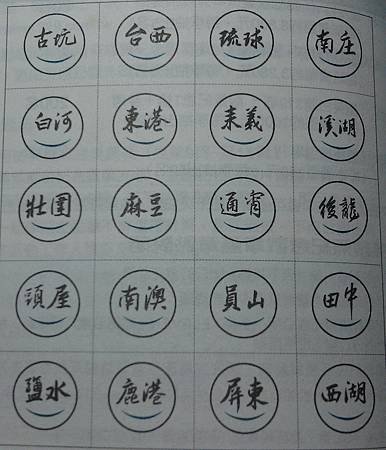 古坑 台西 琉球 南庄
白河 東港 来義 溪湖
壯圍 麻豆 通宵 後龍
頭屋 南澳 員山 田中
鹽水 鹿港 屏東 西湖